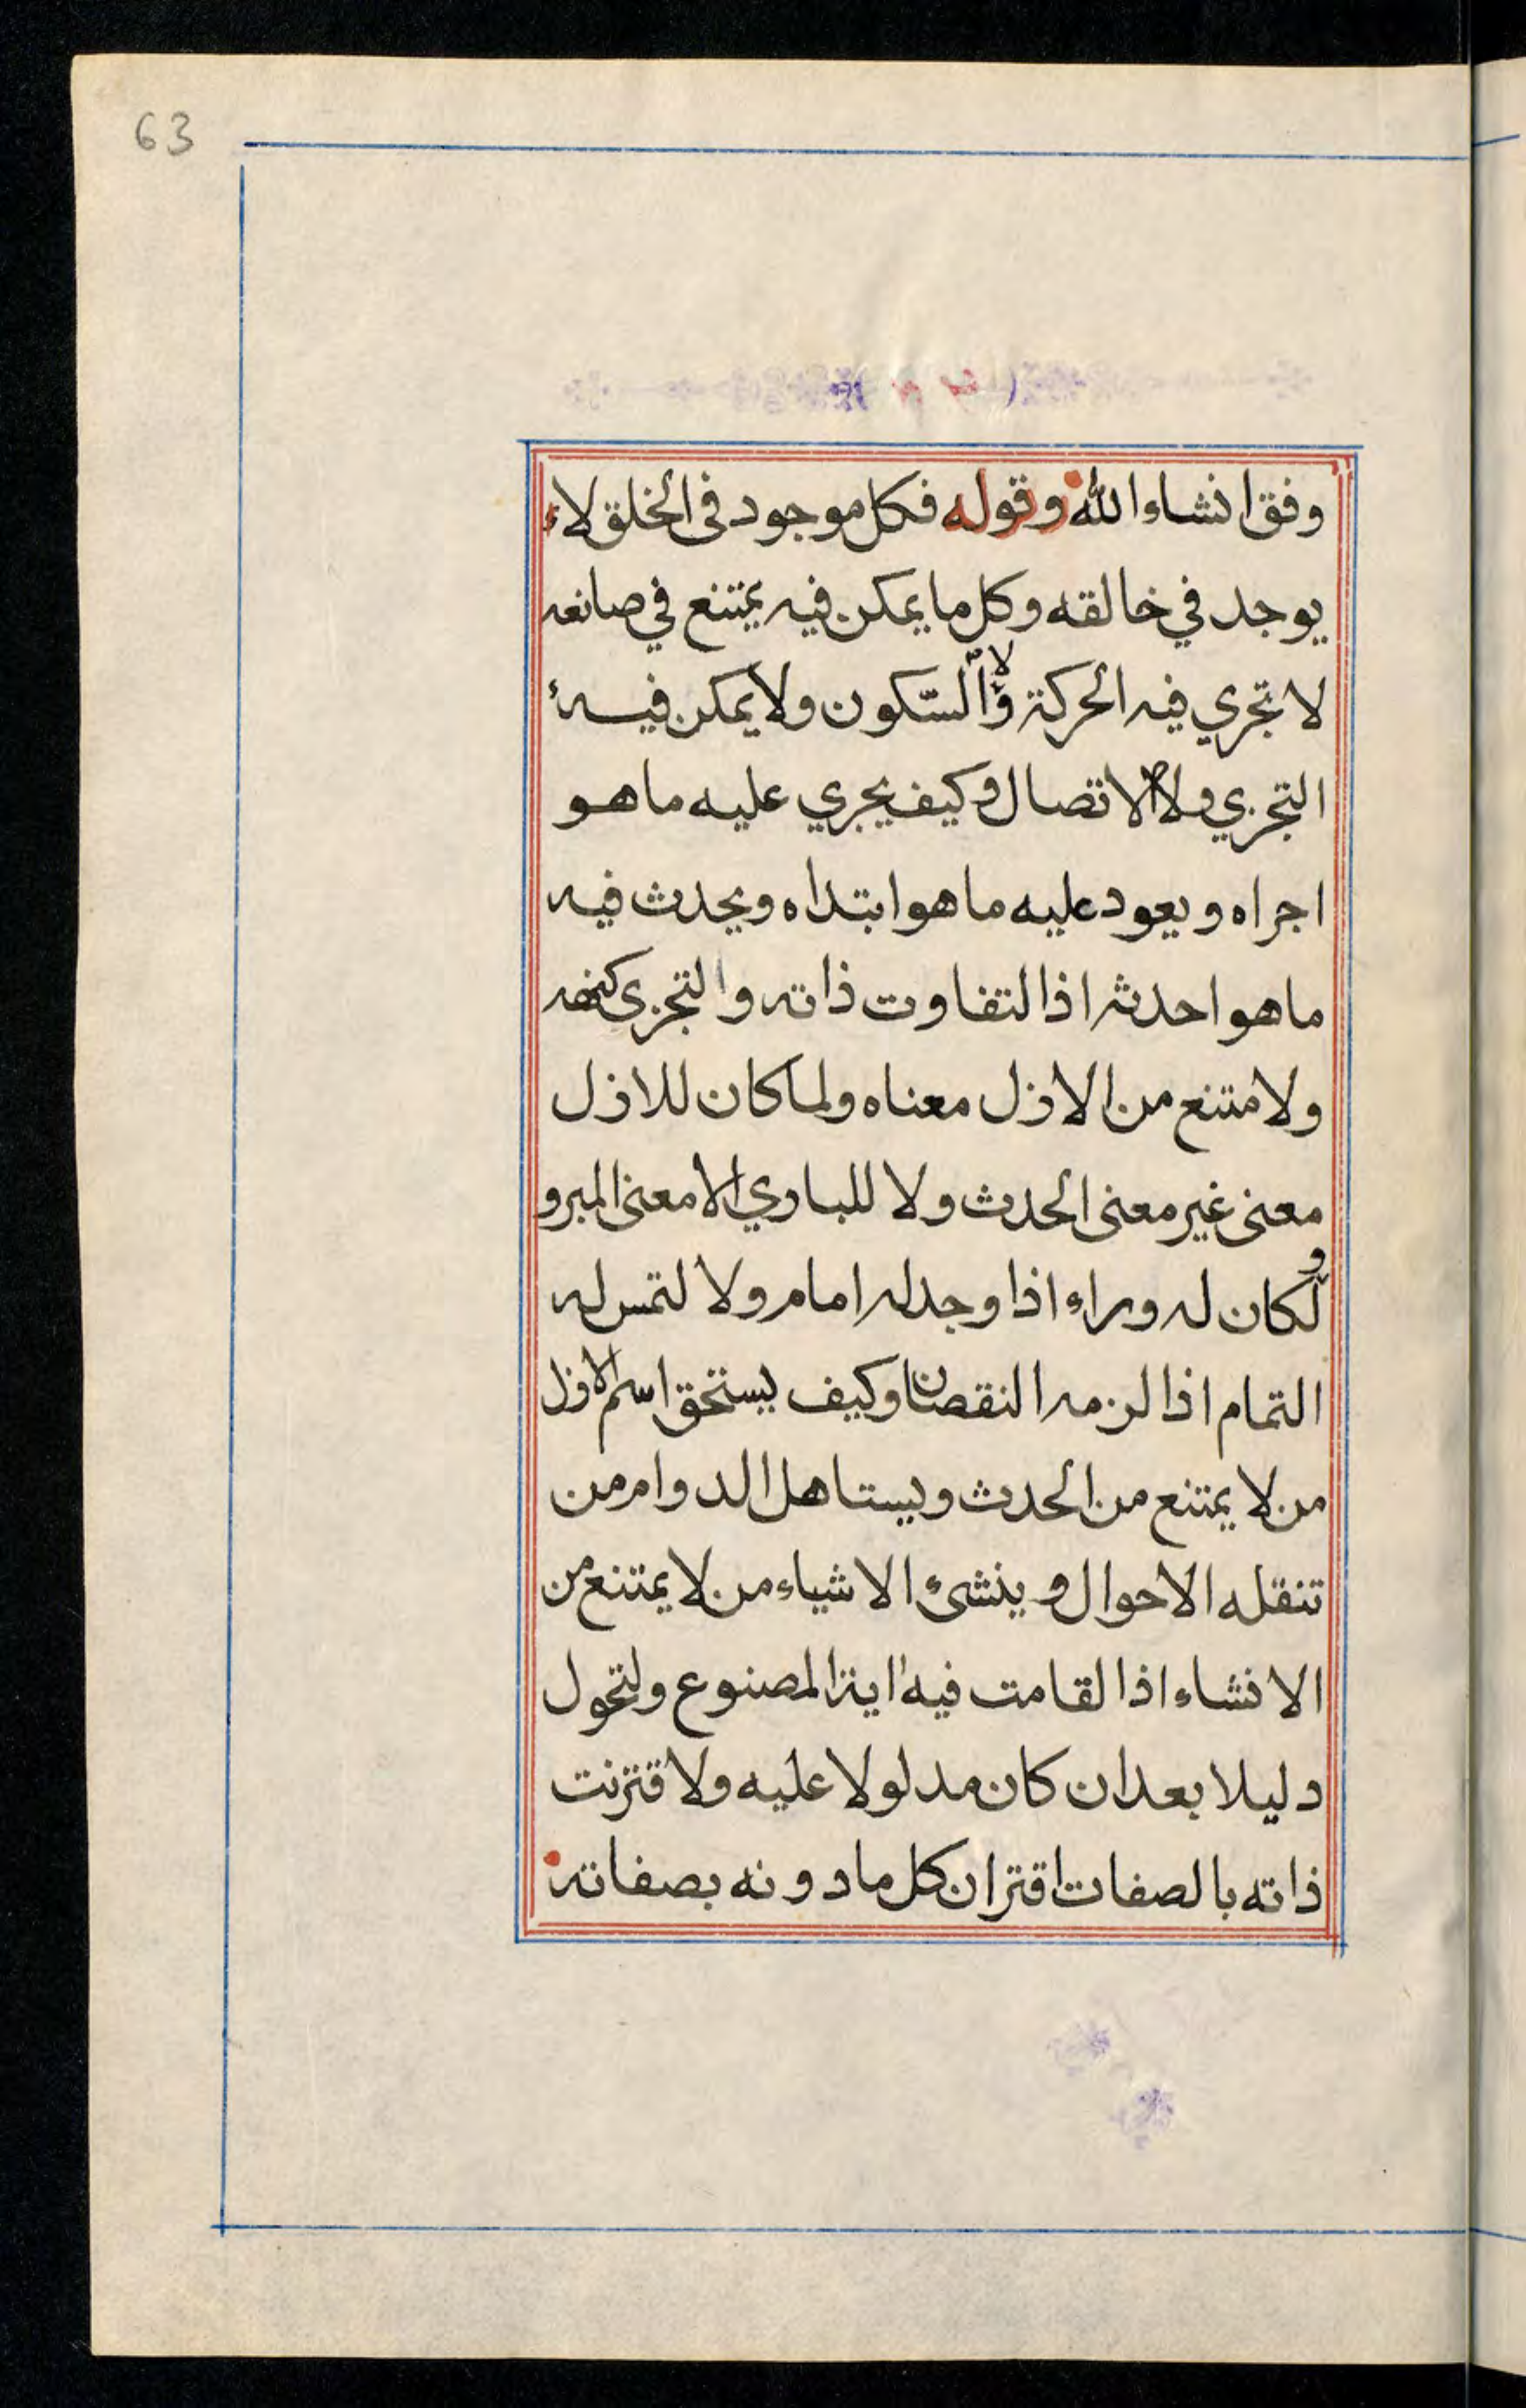 63
وفق انشاء الله وقوله فكل موجود في الخلق لا
يوجد في خالقه وكل ما يمكن فيه يمتنع في صانعه
لا تجري فيه الحركة ولا السّكون ولا يمكن فيه
التجزي ولا الاتصال وكيف يجري عليه ما هو
اجراه ويعود عليه ما هو ابتداه ويحدث فيه
ما هو احدثه اذا لتفاوت ذاته والتجزى كنهه
ولا متنع من الازل معناه ولما كان للازل
معنى غير معنى الحدث ولا للباري الا معنى المبرو
و لكان له وراء اذا وجد له امام ولا لتمس له
التمام اذا لزمه النقصان وكيف يستحق اسم الازل
من لا يمتنع من الحدث ويستاهل الدوام من
تنقله الاحوال وينشئ الاشياء من لا يمتنع من
الانشاء اذا لقامت فيه اية المصنوع ولتحول
دليلا بعد ان كان مدلولا عليه ولا قترنت
ذاته بالصفات اقتران كل ما دونه بصفاته